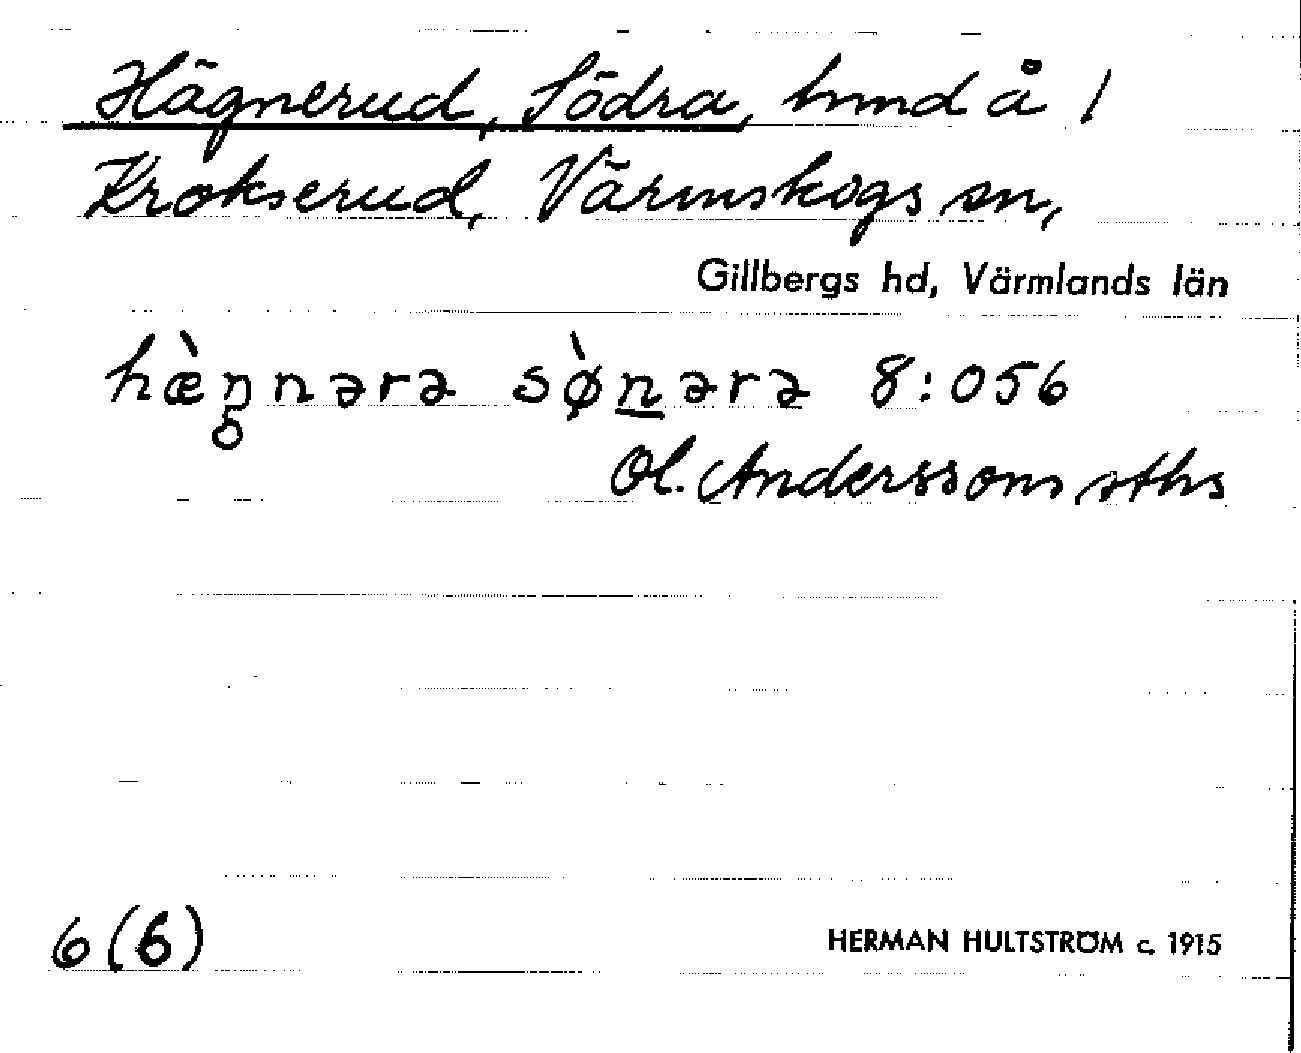 Hägnerud, Södra, hmd å 1
Krokserud, Värmskogs sn,
Gillbergs hd, Värmlands län
hæ̀ŋ̥nərə sø̀n̲ərə 8:056
Ol. Anderssons sths
6(6)
HERMAN HULTSTRÖM c. 1915